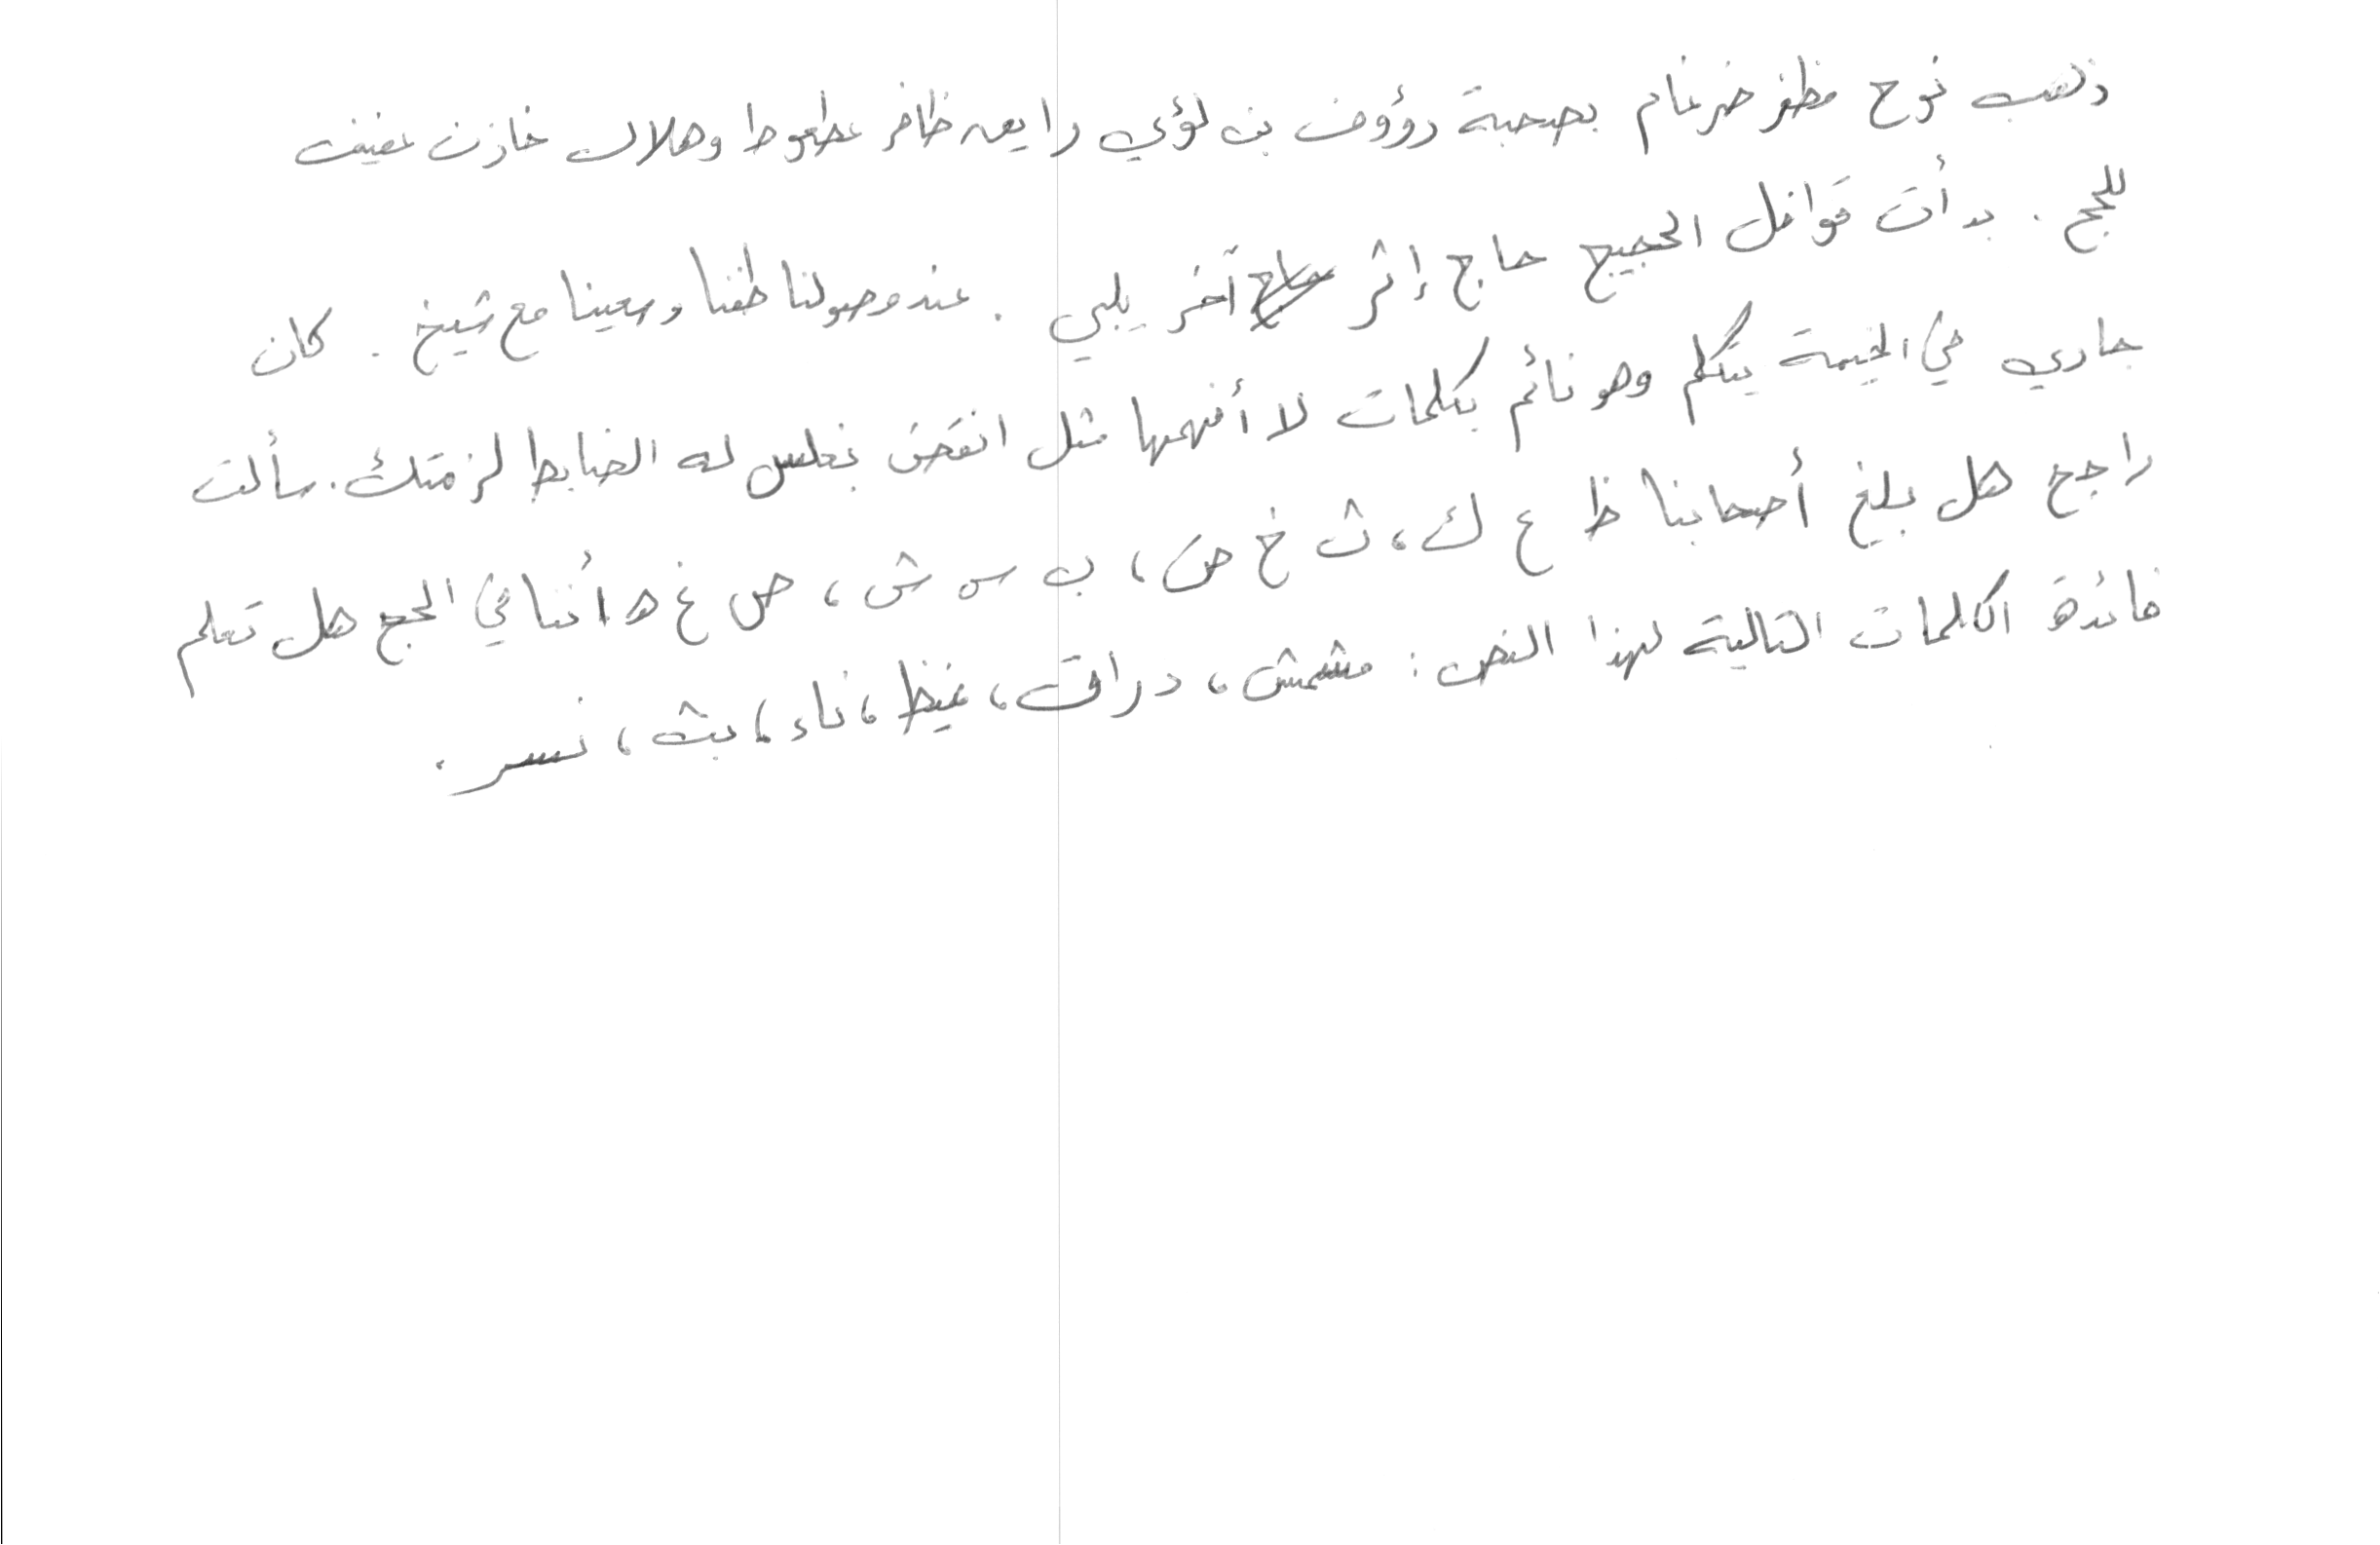 ذهب نوح مظفر ضرغام بصحبة رؤوف بن لؤي رايع ظافر عطعوط وهلال خازن عفيف
للحج . بدأت قوافل الحجيج حاج إثر حاج آخر يلبي . عند وصولنا طفنا وسعينا مع شيخ . كان
جاري في الخيمة يتكلم وهو نائم بكلمات لا أفهمها مثل انقض بغلس له الضابط لزمتك . سألت
راجح هل بلغ أصحابنا ظ ع ك، ث خ ض، ب س ش، ص غ ه أننا في الحج هل تعلم
فائدة الكلمات التالية لهذا النص : مشمش، دراق، غيظ، ناء، بث، نسر .